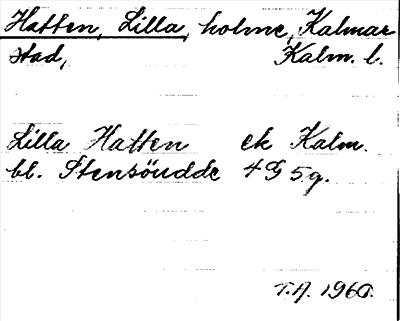 Hatten, Lilla, holme, Kalmar
stad, Kalm. l.
Lilla Hatten ek Kalm.
bl. Stensöudde 4G 5g.
T.A. 1960.